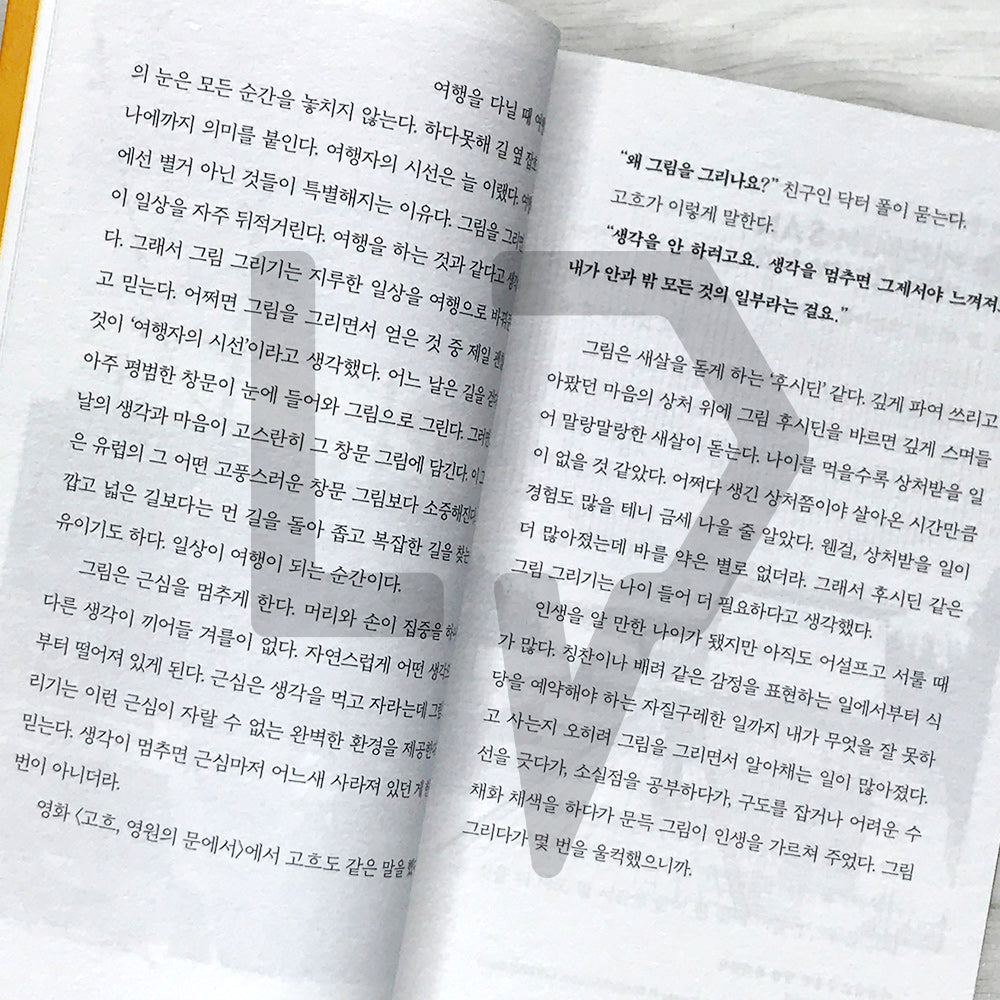 여행을 다닐 때
의 눈은 모든 순간을 놓치지 않는다. 하다못해 길 옆
나에까지 의미를 붙인다. 여행자의 시선은 늘 이랬다.
에선 별거 아닌 것들이 특별해지는 이유다. 그림을
이 일상을 자주 뒤적거린다. 여행을 하는 것과 같다고
다. 그래서 그림 그리기는 지루한 일상을 여행으로
고 믿는다. 어쩌면 그림을 그리면서 얻은 것 중 제일
것이 ‘여행자의 시선’이라고 생각했다. 어느 날은 길을
아주 평범한 창문이 눈에 들어와 그림으로 그린다.
날의 생각과 마음이 고스란히 그 창문 그림에 담긴다.
은 유럽의 그 어떤 고풍스러운 창문 그림보다 소중해진다.
깝고 넓은 길보다는 먼 길을 돌아 좁고 복잡한 길을 찾는
유이기도 하다. 일상이 여행이 되는 순간이다.
그림은 근심을 멈추게 한다. 머리와 손이 집중을
다른 생각이 끼어들 겨를이 없다. 자연스럽게 어떤
부터 떨어져 있게 된다. 근심은 생각을 먹고 자라는데
리기는 이런 근심이 자랄 수 없는 완벽한 환경을
믿는다. 생각이 멈추면 근심마저 어느새 사라져 있던 게
번이 아니더라.
영화 〈고흐, 영원의 문에서〉에서 고흐도 같은 말을
“왜 그림을 그리나요?” 친구인 닥터 폴이 묻는다.
고흐가 이렇게 말한다.
“생각을 안 하려고요. 생각을 멈추면 그제서야 느껴져.
내가 안과 밖 모든 것의 일부라는 걸요.”
그림은 새살을 돋게 하는 ‘후시딘’ 같다. 깊게 파여 쓰리고
아팠던 마음의 상처 위에 그림 후시딘을 바르면 깊게 스며들
어 말랑말랑한 새살이 돋는다. 나이를 먹을수록 상처받을 일
이 없을 것 같았다. 어쩌다 생긴 상처쯤이야 살아온 시간만큼
경험도 많을 테니 금세 나을 줄 알았다. 웬걸, 상처받을 일이
더 많아졌는데 바를 약은 별로 없더라. 그래서 후시딘 같은
그림 그리기는 나이 들어 더 필요하다고 생각했다.
인생을 알 만한 나이가 됐지만 아직도 어설프고 서툴 때
가 많다. 칭찬이나 배려 같은 감정을 표현하는 일에서부터 식
당을 예약해야 하는 자질구레한 일까지 내가 무엇을 잘 못하
고 사는지 오히려 그림을 그리면서 알아채는 일이 많아졌다.
선을 긋다가, 소실점을 공부하다가, 구도를 잡거나 어려운 수
채화 채색을 하다가 문득 그림이 인생을 가르쳐 주었다. 그림
그리다가 몇 번을 울컥했으니까.